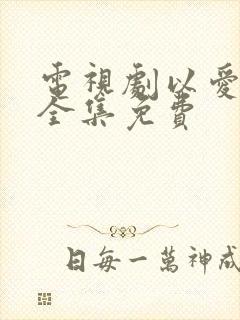 電視劇以愛
全集免費
日每一萬神成